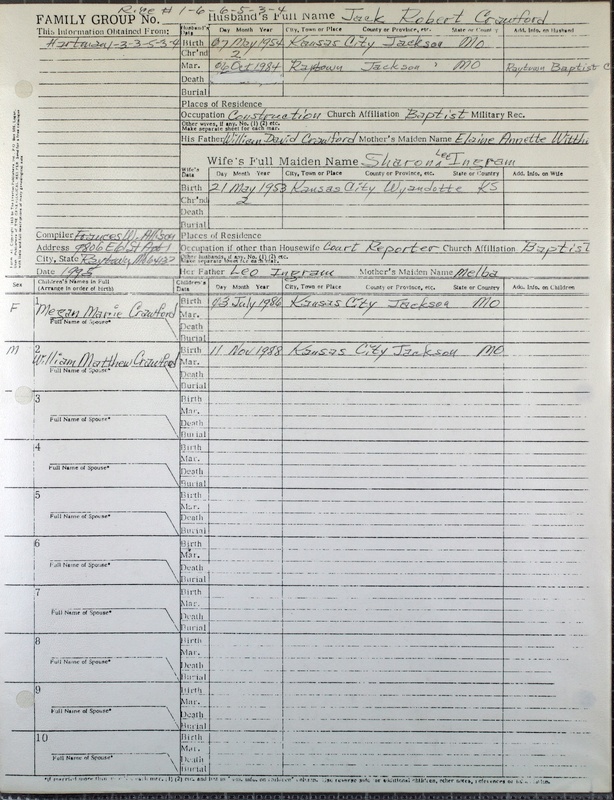 Rine # 1-6-6-6-5-3-4
FAMILY GROUP No. Husband's Full Name Jack Robert Crawford
This Information Obtained From: Husband's Data Day Month Year City, Town or Place County or Province, etc. State or Country Add. Info. on Husband
Hartman 1-3-3-5-3-4 Birth 07 May 1954 Kansas City Jackson MO
Chr'nd 2
Mar. 06 Oct 1984 Raytown Jackson MO Raytown Baptist C
Death
Burial
Places of Residence
Occupation Construction Church Affiliation Baptist Military Rec.
Other wives, if any. No. (1) (2) etc.
Make separate sheet for each mar.
His Father William David Crawford Mother's Maiden Name Elaine Annette
Wife's Full Maiden Name Sharon Lee Ingram
Wife's Data Day Month Year City, Town or Place County or Province, etc. State or Country Add. Info. on Wife
Birth 21 May 1953 Kansas City Wyandotte KS
Chr'nd 2
Death
Burial
Compiler Frances W. Allison Places of Residence
Address Occupation if other than Housewife Court Reporter Church Affiliation Baptist
City, State Other husbands, if any. No. (1) (2) etc.
Make separate sheet for each mar.
Date 1995 Her Father Leo Ingram Mother's Maiden Name Melba
Sex Children's Names in Full (Arrange in order of birth) Children's Data Day Month Year City, Town or Place County or Province, etc. State or Country Add. Info. on Children
F 1 Megan Marie Crawford Birth 03 July 1986 Kansas City Jackson MO
Mar.
Full Name of Spouse* Death
Burial
M 2 William Matthew Crawford Birth 11 Nov 1988 Kansas City Jackson MO
Mar.
Full Name of Spouse* Death
Burial
3 Birth
Mar.
Full Name of Spouse* Death
Burial
4 Birth
Mar.
Full Name of Spouse* Death
Burial
5 Birth
Mar.
Full Name of Spouse* Death
Burial
6 Birth
Mar.
Full Name of Spouse* Death
Burial
7 Birth
Mar.
Full Name of Spouse* Death
Burial
8 Birth
Mar.
Full Name of Spouse* Death
Burial
9 Birth
Mar.
Full Name of Spouse* Death
Burial
10 Birth
Mar.
Full Name of Spouse* Death
Burial